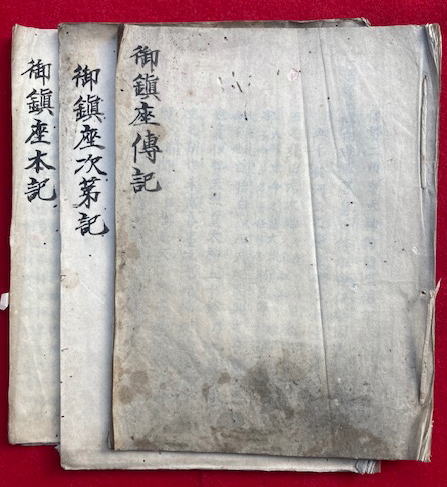 御鎮座傳記
御鎮座次苐記
御鎮座本記